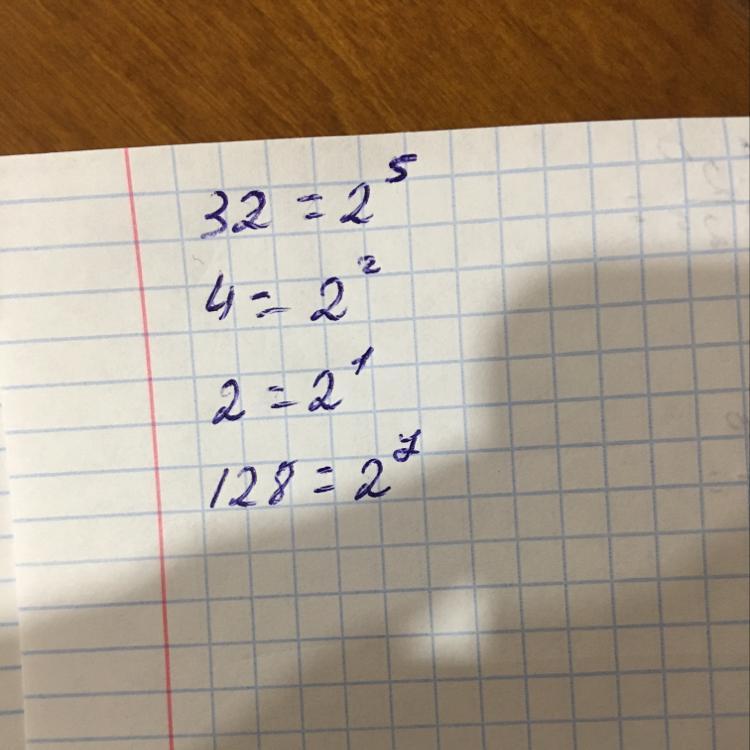 32 = 2⁵
4 = 2²
2 = 2¹
128 = 2⁷